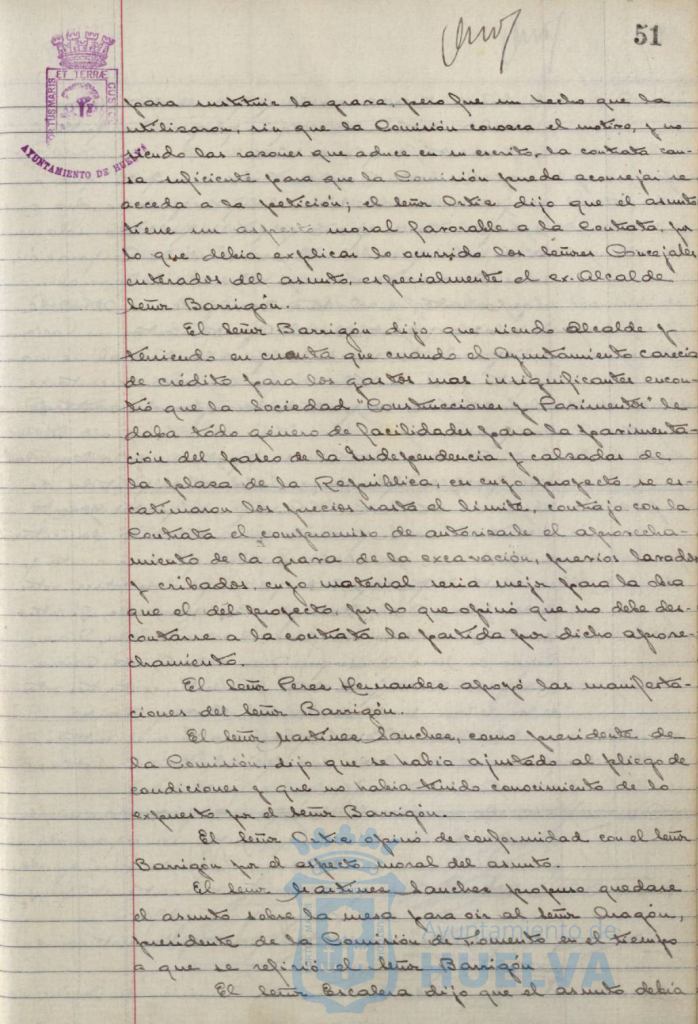 51
PORTUS MARIS ET TERRÆ CUSTODIA
AYUNTAMIENTO DE HUELVA
para sustituir la grava, pero fue un hecho que la
utilizaron, sin que la Comisión conozca el motivo, y no
siendo las razones que aduce en su escrito, la contrata cau-
sa suficiente para que la Comisión pueda aconsejar se
acceda a la petición; el señor Ortiz dijo que el asunto
tiene un aspecto moral favorable a la Contrata, por
lo que debia explicar lo ocurrido los señores Concejales
enterados del asunto, especialmente el ex-Alcalde
señor Barrigón.
El señor Barrigón dijo que siendo Alcalde y
teniendo en cuenta que cuando el Ayuntamiento carecia
de crédito para los gastos mas insignificantes encon-
tró que la Sociedad "Construcciones y Pavimentos" le
daba todo género de facilidades para la pavimenta-
ción del paseo de la Independencia y calzadas de
la plaza de la República, en cuyo proyecto se es-
catimaron los precios hasta el limite, contrajo con la
Contrata el compromiso de autorizarle el aprovecha-
miento de la grava de la excavación, previos lavados
y cribados, cuyo material seria mejor para la obra
que el del proyecto, por lo que opinó que no debe des-
contarse a la contrata la partida por dicho aprove-
chamiento.
El señor Perez Hernandez apoyó las manifesta-
ciones del señor Barrigón.
El señor Martinez Sanchez, como presidente de
la Comisión, dijo que se habia ajustado al pliego de
condiciones y que no habia tenido conocimiento de lo
expuesto por el señor Barrigón.
El señor Ortiz opinó de conformidad con el señor
Barrigón por el aspecto moral del asunto.
El señor Martinez Sanchez propuso quedase
el asunto sobre la mesa para oir al señor Aragón,
presidente de la Comisión de Fomento en el tiempo
a que se refirió el señor Barrigón
El señor Escalera dijo que el asunto debia
Ayuntamiento de
HUELVA